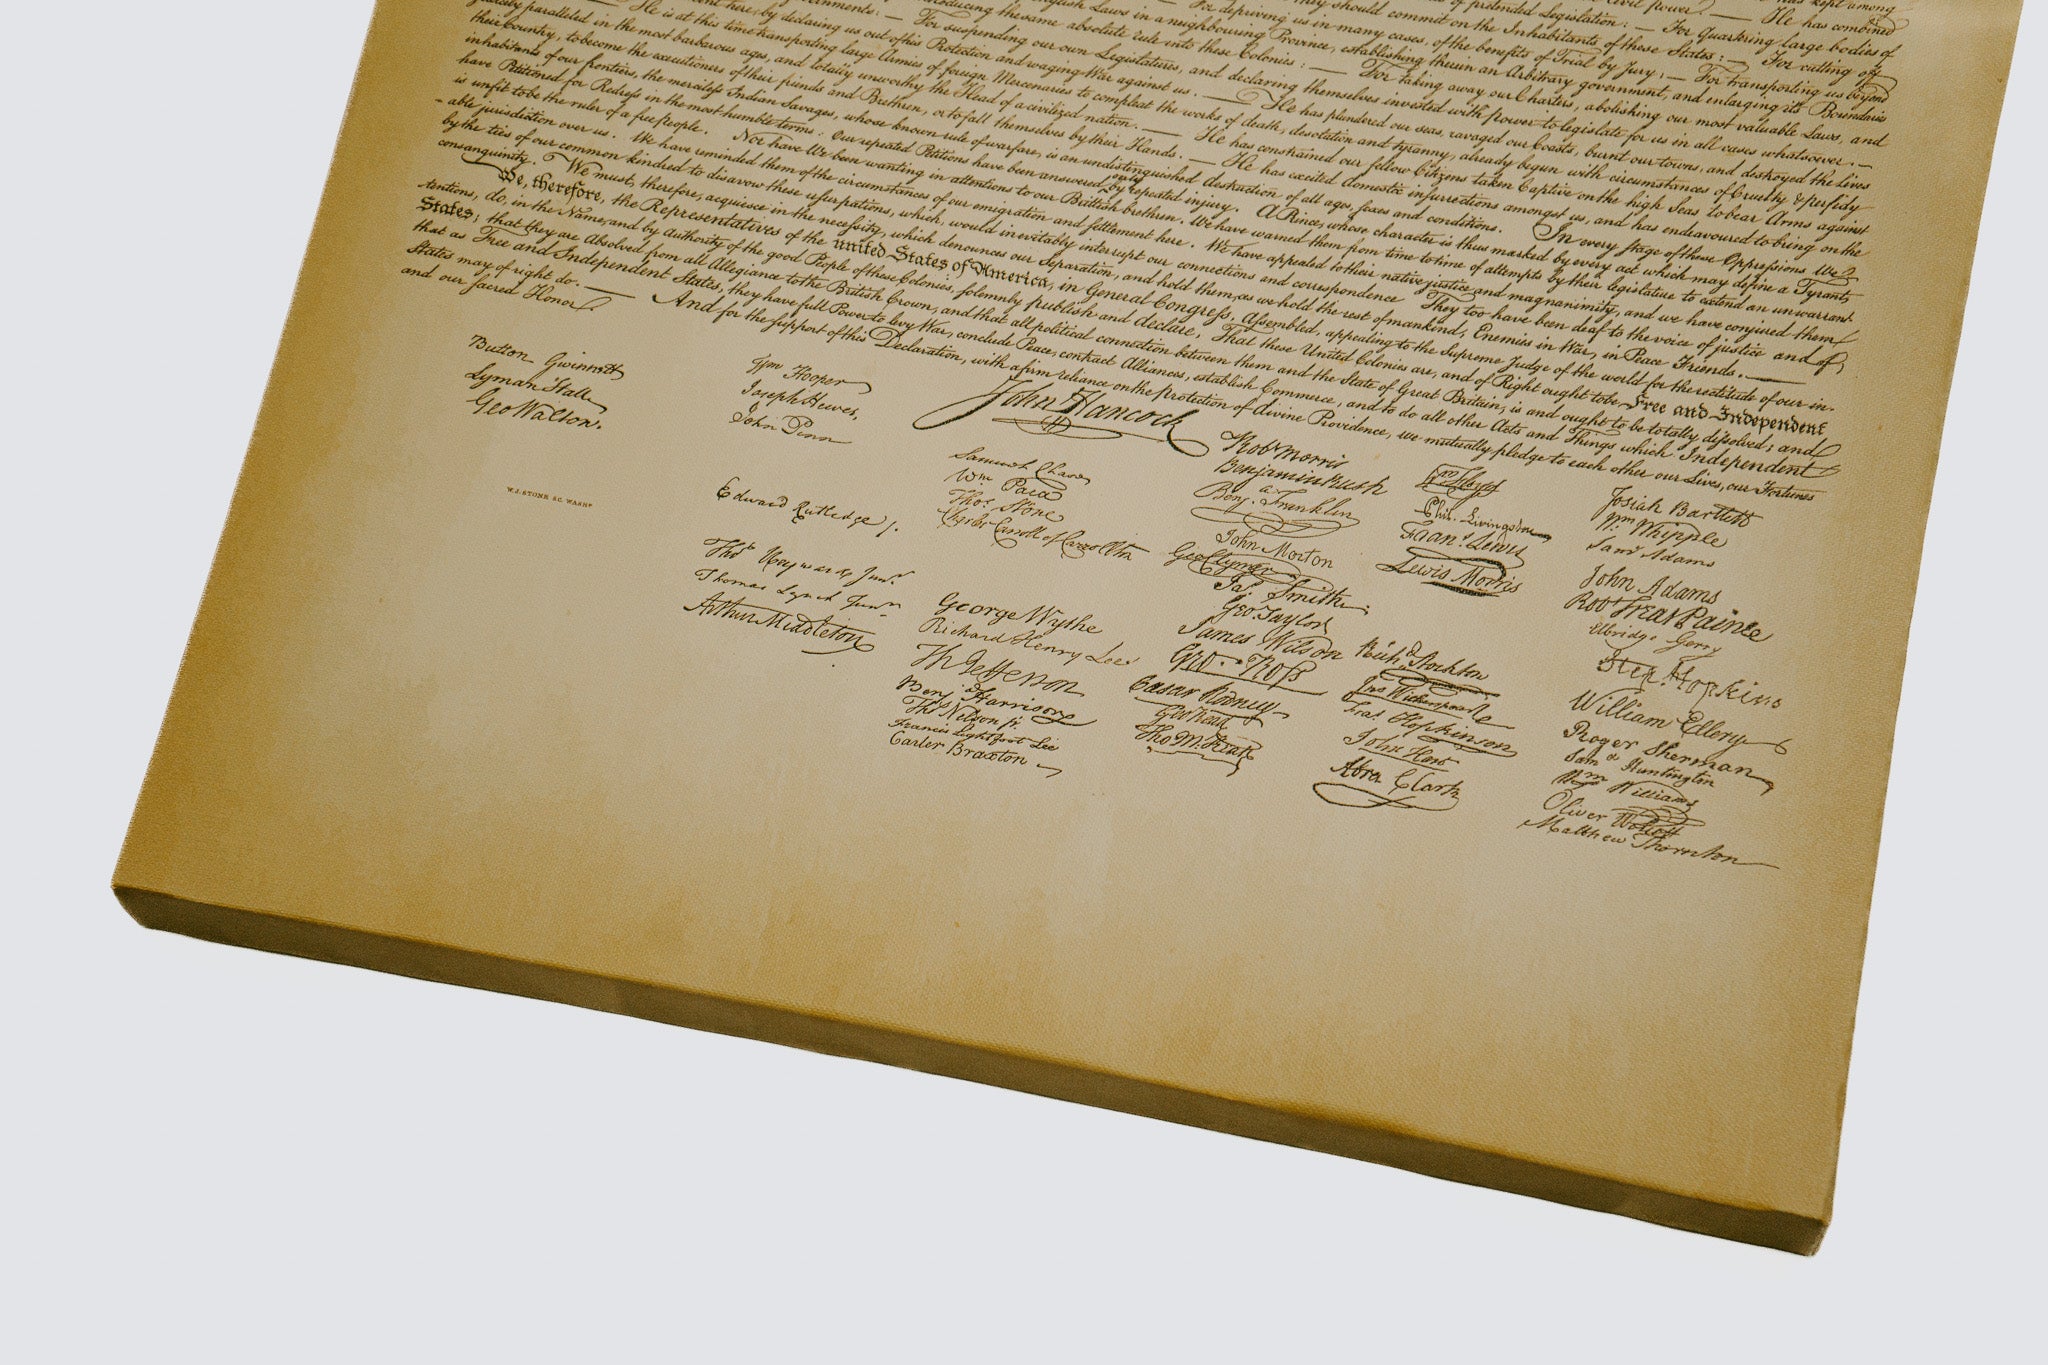 has kept among
civil power. — He has combined
of pretended Legislation: — For quartering large bodies of
they should commit on the Inhabitants of these States: — For cutting off
For depriving us in many cases, of the benefits of Trial by Jury: — For transporting us beyond
English Laws in a neighbouring Province, establishing therein an Arbitrary government, and enlarging its Boundaries
introducing the same absolute rule into these Colonies: — For taking away our Charters, abolishing our most valuable Laws, and
Governments: — For suspending our own Legislatures, and declaring themselves invested with power to legislate for us in all cases whatsoever. —
here, by declaring us out of his Protection and waging War against us. — He has plundered our seas, ravaged our Coasts, burnt our towns, and destroyed the lives
— He is at this time transporting large Armies of foreign Mercenaries to compleat the works of death, desolation and tyranny, already begun with circumstances of Cruelty & perfidy
paralleled in the most barbarous ages, and totally unworthy the Head of a civilized nation. — He has constrained our fellow Citizens taken Captive on the high Seas to bear Arms against
their Country, to become the executioners of their friends and Brethren, or to fall themselves by their Hands. — He has excited domestic insurrections amongst us, and has endeavoured to bring on the
inhabitants of our frontiers, the merciless Indian Savages, whose known rule of warfare, is an undistinguished destruction of all ages, sexes and conditions. In every stage of these Oppressions We
have Petitioned for Redress in the most humble terms: Our repeated Petitions have been answered only by repeated injury. A Prince, whose character is thus marked by every act which may define a Tyrant,
is unfit to be the ruler of a free people. Nor have We been wanting in attentions to our Brittish brethren. We have warned them from time to time of attempts by their legislature to extend an unwarrant-
-able jurisdiction over us. We have reminded them of the circumstances of our emigration and settlement here. We have appealed to their native justice and magnanimity, and we have conjured them
by the ties of our common kindred to disavow these usurpations, which, would inevitably interrupt our connections and correspondence They too have been deaf to the voice of justice and of
consanguinity. We must, therefore, acquiesce in the necessity, which denounces our Separation, and hold them, as we hold the rest of mankind, Enemies in War, in Peace Friends. —
We, therefore, the Representatives of the united States of America, in General Congress, Assembled, appealing to the Supreme Judge of the world for the rectitude of our in-
tentions, do, in the Name, and by Authority of the good People of these Colonies, solemnly publish and declare, That these United Colonies are, and of Right ought to be Free and Independent
States; that they are Absolved from all Allegiance to the British Crown, and that all political connection between them and the State of Great Britain, is and ought to be totally dissolved; and
that as Free and Independent States, they have full Power to levy War, conclude Peace, contract Alliances, establish Commerce, and to do all other Acts and Things which Independent
States may of right do. — And for the support of this Declaration, with a firm reliance on the protection of divine Providence, we mutually pledge to each other our Lives, our Fortunes
and our sacred Honor.
John Hancock
Button Gwinnett
Lyman Hall
Geo Walton.
W. J. STONE SC. WASHN
Wm Hooper
Joseph Hewes,
John Penn
Edward Rutledge /.
Thos Heyward Junr.
Thomas Lynch Junr.
Arthur Middleton
Samuel Chase
Wm Paca
Thos Stone
Charles Carroll of Carrollton
George Wythe
Richard Henry Lee
Th Jefferson
Benj Harrison
Thos Nelson jr.
Francis Lightfoot Lee
Carter Braxton
Robt Morris
Benjamin Rush
Benj. Franklin
John Morton
Geo Clymer
Jas. Smith
Geo Taylor
James Wilson
Geo. Ross
Caesar Rodney
Geo Read
Tho M:Kean
Wm Floyd
Phil. Livingston
Frans. Lewis
Lewis Morris
Richd. Stockton
Jno Witherspoon
Fras. Hopkinson
John Hart
Abra Clark
Josiah Bartlett
Wm Whipple
Saml Adams
John Adams
Robt Treat Paine
Elbridge Gerry
Step. Hopkins
William Ellery
Roger Sherman
Saml Huntington
Wm Williams
Oliver Wolcott
Matthew Thornton